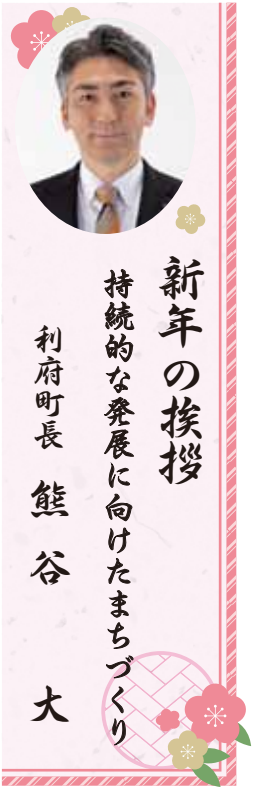 新年の挨拶
持続的な発展に向けたまちづくり
利府町長 熊谷 大